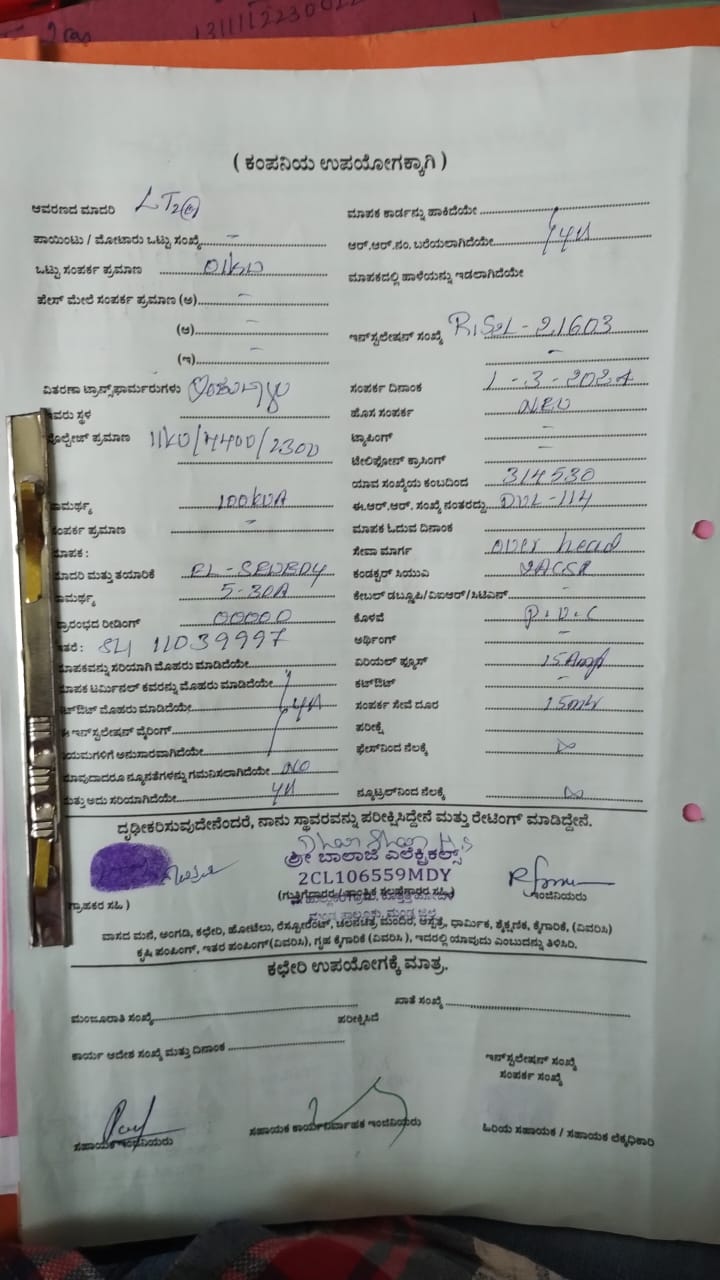 1311112230022
( ಕಂಪನಿಯ ಉಪಯೋಗಕ್ಕಾಗಿ )
ಆವರಣದ ಮಾದರಿ LT2(a)
ಪಾಯಿಂಟು / ಮೋಟಾರು ಒಟ್ಟು ಸಂಖ್ಯೆ -
ಒಟ್ಟು ಸಂಪರ್ಕ ಪ್ರಮಾಣ 01KW
ಪೇಸ್ ಮೇಲೆ ಸಂಪರ್ಕ ಪ್ರಮಾಣ (ಅ) -
(ಆ) -
(ಇ) -
ವಿತರಣಾ ಟ್ರಾನ್ಸ್‌ಫಾರ್ಮರುಗಳು
ಇವರು ಸ್ಥಳ
ವೋಲ್ಟೇಜ್ ಪ್ರಮಾಣ 11KV/4400/2300
ಸಾಮರ್ಥ್ಯ 100KVA
ಸಂಪರ್ಕ ಪ್ರಮಾಣ -
ಮಾಪಕ :
ಮಾದರಿ ಮತ್ತು ತಯಾರಿಕೆ EL-SEWEDY
ಸಾಮರ್ಥ್ಯ 5-30A
ಪ್ರಾರಂಭದ ರೀಡಿಂಗ್ 00000
ಇತರೆ : SH 11039997
ಮಾಪಕವನ್ನು ಸರಿಯಾಗಿ ಮೊಹರು ಮಾಡಿದೆಯೇ
ಮಾಪಕ ಟರ್ಮಿನಲ್ ಕವರನ್ನು ಮೊಹರು ಮಾಡಿದೆಯೇ
ಕಟ್‌ಔಟ್ ಮೊಹರು ಮಾಡಿದೆಯೇ
ಈ ಇನ್‌ಸ್ಟಲೇಷನ್ ವೈರಿಂಗ್
ನಿಯಮಗಳಿಗೆ ಅನುಸಾರವಾಗಿದೆಯೇ
ಯಾವುದಾದರೂ ನ್ಯೂನತೆಗಳನ್ನು ಗಮನಿಸಲಾಗಿದೆಯೇ NO
ಮತ್ತು ಅದು ಸರಿಯಾಗಿದೆಯೇ
ಮಾಪಕ ಕಾರ್ಡನ್ನು ಹಾಕಿದೆಯೇ
ಆರ್.ಆರ್.ನಂ. ಬರೆಯಲಾಗಿದೆಯೇ
ಮಾಪಕದಲ್ಲಿ ಹಾಳೆಯನ್ನು ಇಡಲಾಗಿದೆಯೇ
ಇನ್‌ಸ್ಟಲೇಷನ್ ಸಂಖ್ಯೆ 21603
-
ಸಂಪರ್ಕ ದಿನಾಂಕ 1-3-2024
ಹೊಸ ಸಂಪರ್ಕ NEW
ಟ್ಯಾಪಿಂಗ್ -
ಟೆಲಿಫೋನ್ ಕ್ರಾಸಿಂಗ್ -
ಯಾವ ಸಂಖ್ಯೆಯ ಕಂಬದಿಂದ 314530
ಈ.ಆರ್.ಆರ್. ಸಂಖ್ಯೆ ನಂತರದ್ದು DVL-114
ಮಾಪಕ ಓದುವ ದಿನಾಂಕ
ಸೇವಾ ಮಾರ್ಗ over head
ಕಂಡಕ್ಟರ್ ಸಿಯುಎ
ಕೇಬಲ್ ಡಬ್ಲ್ಯೂಪಿ/ವಿಐಆರ್/ಸಿಟಿಎಸ್ -
ಕೊಳವೆ P.V.C
ಅರ್ಥಿಂಗ್ -
ಏರಿಯಲ್ ಫ್ಯೂಸ್ 15Amp
ಕಟ್‌ಔಟ್ -
ಸಂಪರ್ಕ ಸೇವೆ ದೂರ 15mtr
ಪರೀಕ್ಷೆ
ಫೇಸ್‌ನಿಂದ ನೆಲಕ್ಕೆ ∞
ನ್ಯೂಟ್ರಲ್‌ನಿಂದ ನೆಲಕ್ಕೆ ∞
ದೃಢೀಕರಿಸುವುದೇನೆಂದರೆ, ನಾನು ಸ್ಥಾವರವನ್ನು ಪರೀಕ್ಷಿಸಿದ್ದೇನೆ ಮತ್ತು ರೇಟಿಂಗ್ ಮಾಡಿದ್ದೇನೆ.
ಶ್ರೀ ಬಾಲಾಜಿ ಎಲೆಕ್ಟ್ರಿಕಲ್ಸ್
2CL106559MDY
ಗ್ರಾಹಕರ ಸಹಿ )
ಇಂಜಿನಿಯರು
ವಾಸದ ಮನೆ, ಅಂಗಡಿ, ಕಛೇರಿ, ಹೋಟೆಲು, ರೆಸ್ಟೋರೆಂಟ್, ಚಲನಚಿತ್ರ ಮಂದಿರ, ಆಸ್ಪತ್ರೆ, ಧಾರ್ಮಿಕ, ಶೈಕ್ಷಣಿಕ, ಕೈಗಾರಿಕೆ, (ವಿವರಿಸಿ)
ಕೃಷಿ ಪಂಪಿಂಗ್, ಇತರ ಪಂಪಿಂಗ್ (ವಿವರಿಸಿ), ಗೃಹ ಕೈಗಾರಿಕೆ (ವಿವರಿಸಿ ), ಇದರಲ್ಲಿ ಯಾವುದು ಎಂಬುದನ್ನು ತಿಳಿಸಿರಿ.
ಕಛೇರಿ ಉಪಯೋಗಕ್ಕೆ ಮಾತ್ರ.
ಮಂಜೂರಾತಿ ಸಂಖ್ಯೆ
ಖಾತೆ ಸಂಖ್ಯೆ
ಪರೀಕ್ಷಿಸಿದೆ
ಕಾರ್ಯ ಆದೇಶ ಸಂಖ್ಯೆ ಮತ್ತು ದಿನಾಂಕ
ಇನ್‌ಸ್ಟಲೇಷನ್ ಸಂಖ್ಯೆ
ಸಂಪರ್ಕ ಸಂಖ್ಯೆ
ಸಹಾಯಕ ಇಂಜಿನಿಯರು
ಸಹಾಯಕ ಕಾರ್ಯನಿರ್ವಾಹಕ ಇಂಜಿನಿಯರು
ಹಿರಿಯ ಸಹಾಯಕ / ಸಹಾಯಕ ಲೆಕ್ಕಧಿಕಾರಿ